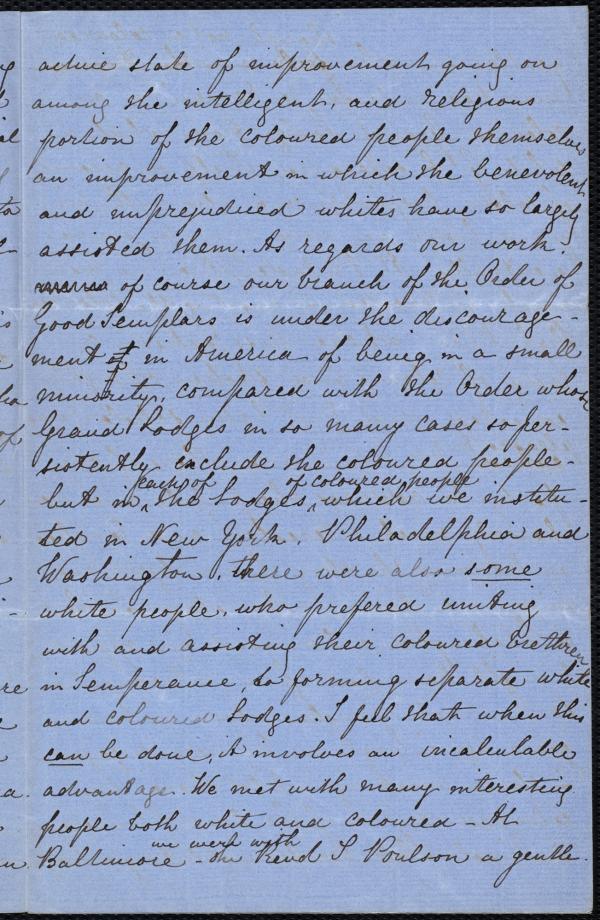 active state of improvement going on
among the intelligent, and religious
portion of the coloured people themselves
an improvement in which the benevolent
and unprejudiced whites have so largely
assisted them. As regards our work.
of course our branch of the Order of
Good Templars is under the discourage-
ment in America of being in a small
minority, compared with the Order whose
Grand Lodges in so many cases so per-
sistently exclude the coloured people -
but in each of the Lodges of coloured people which we institu-
ted in New York. Philadelphia and
Washington, there were also some
white people, who prefered uniting
with and assisting their coloured brethren
in Temperance, to forming separate white
and coloured Lodges. I feel that when this
can be done, it involves an incalculable
advantage. We met with many interesting
people both white and coloured - At
Baltimore - we were with the Revd S Poulson a gentle-